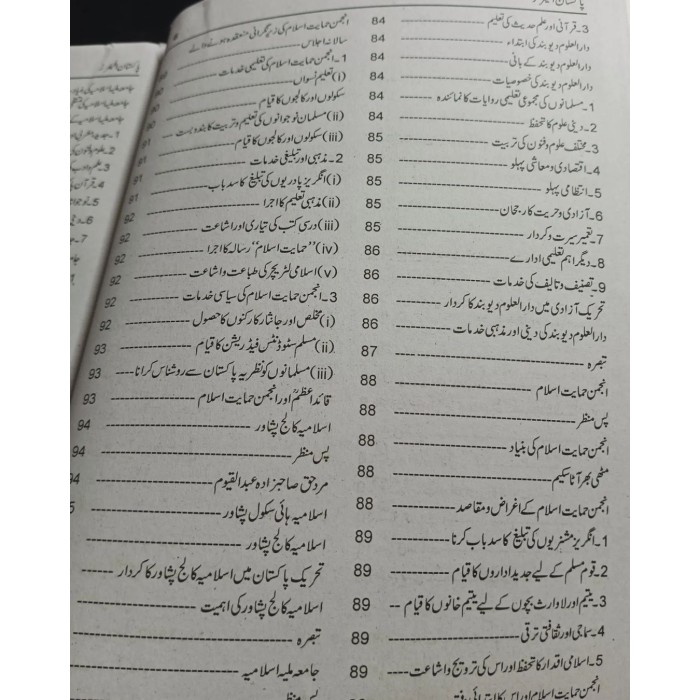 3۔ قرآنی اور علم حدیث کی تعلیم ---------- 84
دارالعلوم دیوبند کی ابتداء ---------- 84
دارالعلوم دیوبند کے بانی ---------- 84
دارالعلوم دیوبند کی خصوصیات ---------- 84
1۔ مسلمانوں کی مجموعی تعلیمی روایات کا نمائندہ ---------- 84
2۔ دینی علوم کا تحفظ ---------- 84
3۔ مختلف علوم و فنون کی تربیت ---------- 85
4۔ اقتصادی و معاشی پہلو ---------- 85
5۔ انتظامی پہلو ---------- 85
6۔ آزادی و حریت کا رجحان ---------- 85
7۔ تعمیر سیرت و کردار ---------- 85
8۔ دیگر اہم تعلیمی ادارے ---------- 86
9۔ تصنیف و تالیف کی خدمات ---------- 86
تحریک آزادی میں دارالعلوم دیوبند کا کردار ---------- 86
دارالعلوم دیوبند کی دینی اور مذہبی خدمات ---------- 86
تبصرہ ---------- 87
انجمن حمایت اسلام ---------- 88
پس منظر ---------- 88
انجمن حمایت اسلام کی بنیاد ---------- 88
مٹھی بھر آٹا سکیم ---------- 88
انجمن حمایت اسلام کے اغراض و مقاصد ---------- 88
1۔ انگریز مشنریوں کی تبلیغ کا سدباب کرنا ---------- 89
2۔ قوم مسلم کے لیے جدید اداروں کا قیام ---------- 89
3۔ یتیم اور لاوارث بچوں کے لیے یتیم خانوں کا قیام -- 89
4۔ سماجی اور ثقافتی ترقی ---------- 89
5۔ اسلامی اقدار کا تحفظ اور اس کی ترویج و اشاعت ---------- 89
انجمن حمایت اسلام اور اس کا ابتدائی
انجمن حمایت اسلام کی زیر نگرانی منعقدہ ہونے والے
سالانہ اجلاس ----------
1۔ انجمن حمایت اسلام کی تعلیمی خدمات ----------
(i) تعلیم نسواں ----------
سکولوں اور کالجوں کا قیام ---------- 90
(ii) مسلمان نوجوانوں کی تعلیم و تربیت کا بندوبست -- 91
(iii) سکولوں اور کالجوں کا قیام ---------- 91
2۔ مذہبی اور تبلیغی خدمات ---------- 91
(i) انگریز پادریوں کی تبلیغ کا سدباب ---------- 91
(ii) مذہبی تعلیم کا اجرا ---------- 91
(iii) درسی کتب کی تیاری اور اشاعت ---------- 92
(iv) ’’حمایت اسلام‘‘ رسالہ کا اجرا ---------- 92
(v) اسلامی لٹریچر کی طباعت و اشاعت ---------- 92
3۔ انجمن حمایت اسلام کی سیاسی خدمات ---------- 92
(i) مخلص اور جانثار کارکنوں کا حصول ---------- 92
(ii) مسلم سٹوڈنٹس فیڈریشن کا قیام ---------- 93
(iii) مسلمانوں کو نظریہ پاکستان سے روشناس کرانا ---- 93
قائد اعظمؒ اور انجمن حمایت اسلام ---------- 93
اسلامیہ کالج پشاور ---------- 94
پس منظر ---------- 94
مرد حق صاحبزادہ عبدالقیوم ----------
اسلامیہ ہائی سکول پشاور ----------
اسلامیہ کالج پشاور ----------
تحریک پاکستان میں اسلامیہ کالج پشاور کا کردار ----------
اسلامیہ کالج پشاور کی اہمیت ----------
تبصرہ ----------
جامعہ ملیہ اسلامیہ ----------
پس منظر